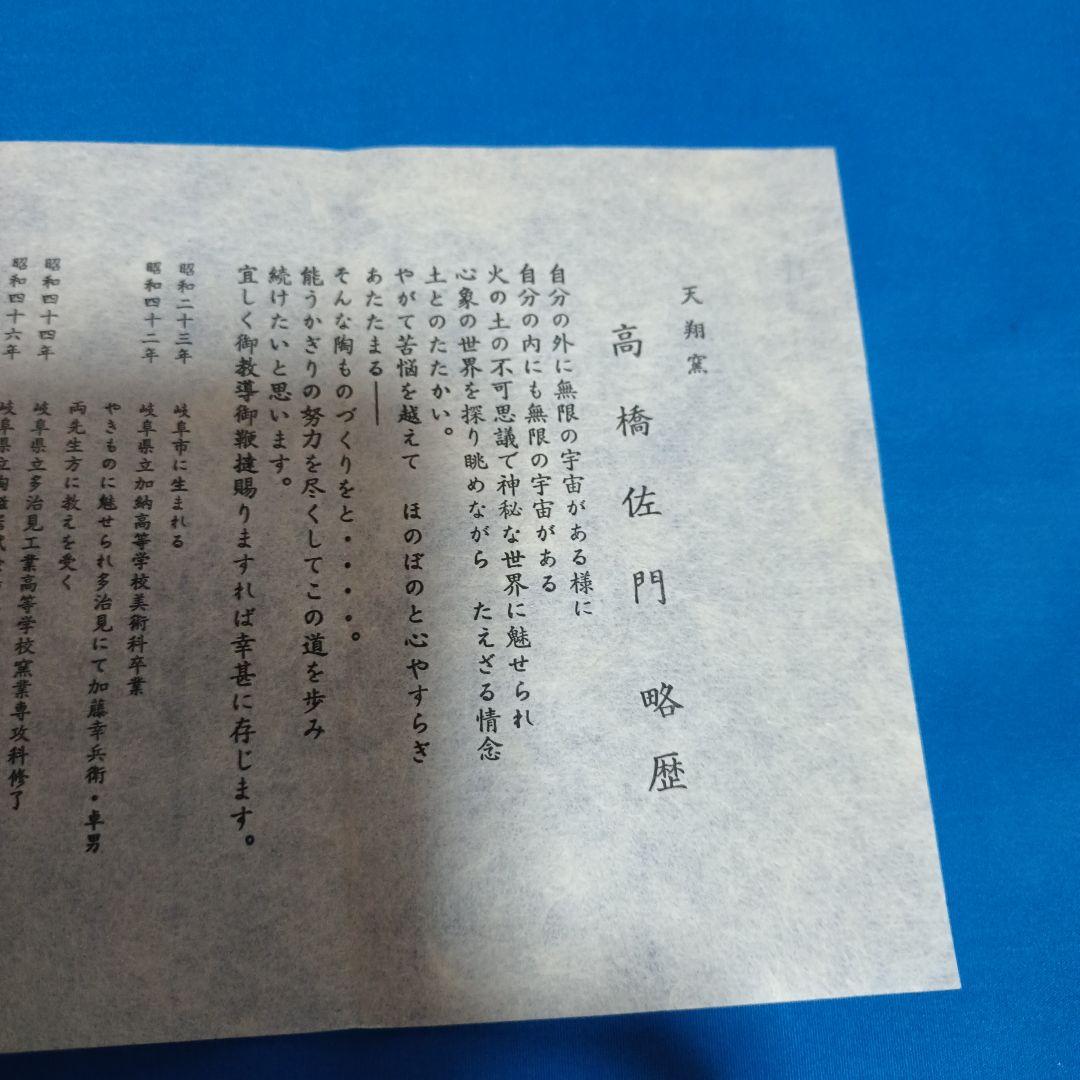 天翔窯
高橋佐門略歴
自分の外に無限の宇宙がある様に
自分の内にも無限の宇宙がある
火の土の不可思議で神秘な世界に魅せられ
心象の世界を探り眺めながら　たえざる情念
土とのたたかい。
やがて苦悩を越えて　ほのぼのと心やすらぎ
あたたまる——
そんな陶ものづくりをと・・・・。
能うかぎりの努力を尽くしてこの道を歩み
続けたいと思います。
宜しく御教導御鞭撻賜りますれば幸甚に存じます。
昭和二十三年　岐阜市に生まれる
昭和四十二年　岐阜県立加納高等学校美術科卒業
やきものに魅せられ多治見にて加藤幸兵衛・卓男
両先生方に教えを受く
昭和四十四年　岐阜県立多治見工業高等学校窯業専攻科修了
昭和四十六年　岐阜県立陶磁器試